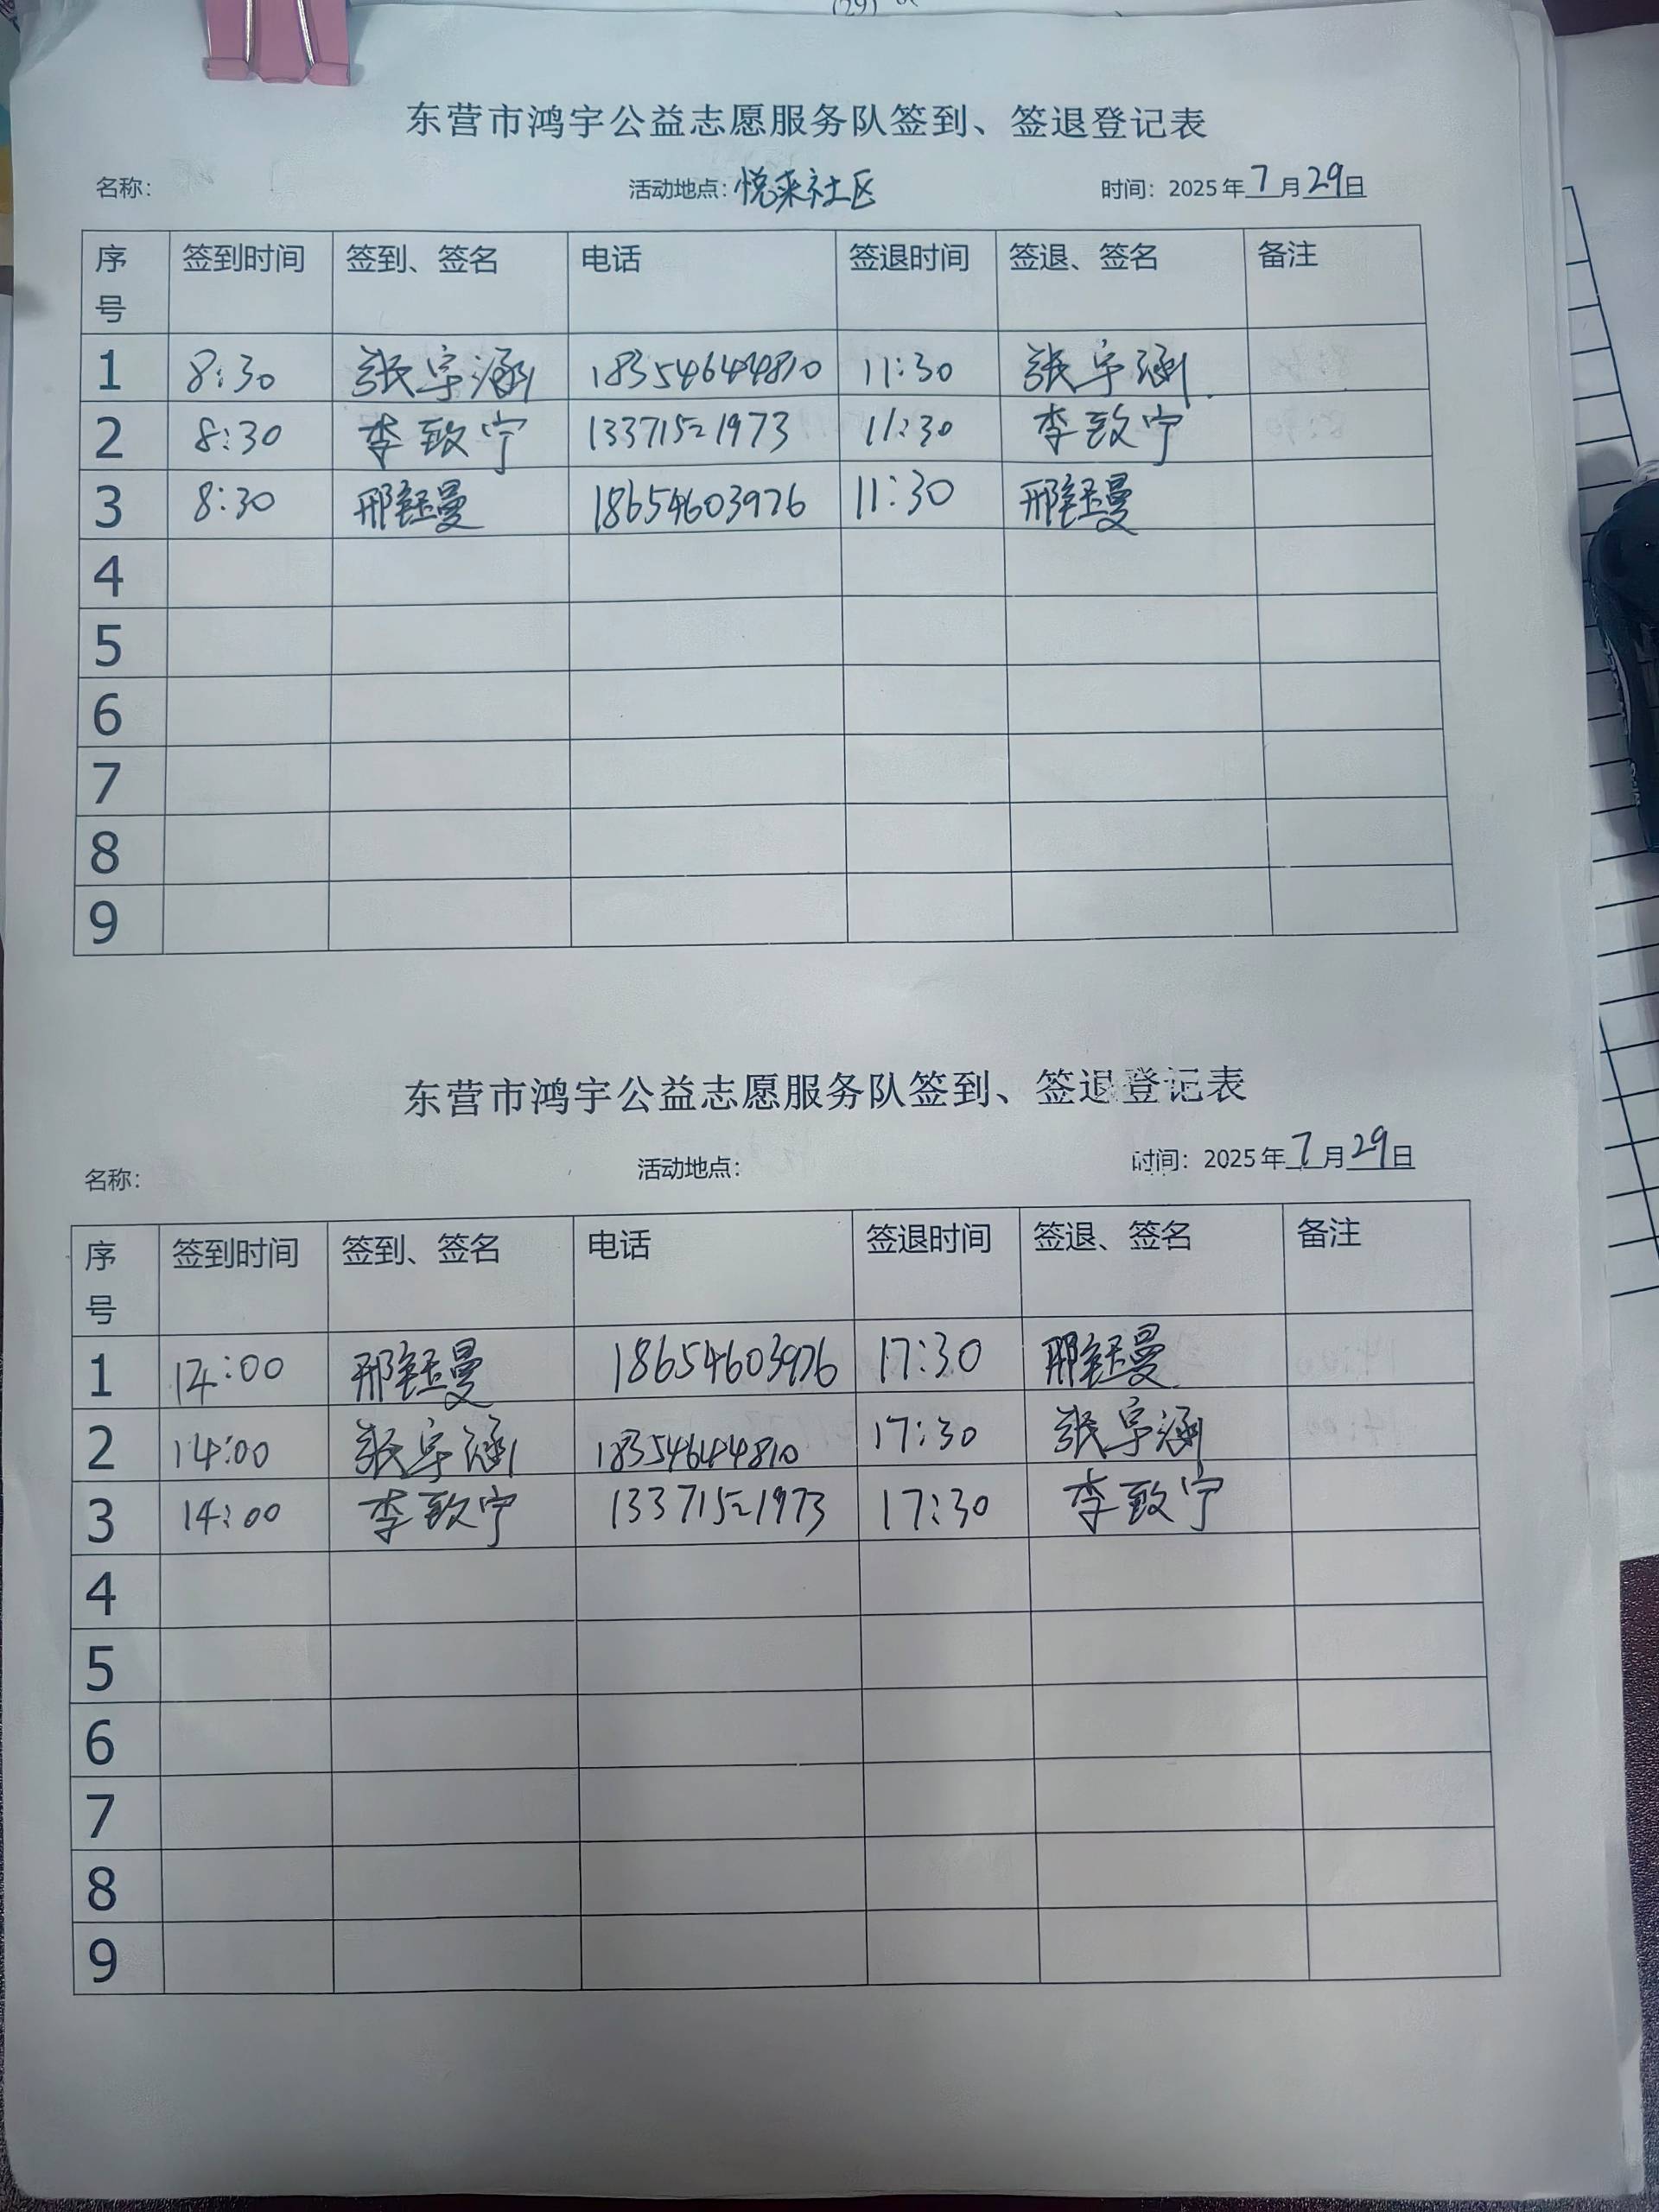 东营市鸿宇公益志愿服务队签到、签退登记表
名称： 活动地点：悦来社区 时间：2025年7月29日
序号 签到时间 签到、签名 电话 签退时间 签退、签名 备注
1 8:30 张宇涵 18354644810 11:30 张宇涵
2 8:30 李致宁 13371521973 11:30 李致宁
3 8:30 邢钰曼 18654603976 11:30 邢钰曼
4
5
6
7
8
9
东营市鸿宇公益志愿服务队签到、签退登记表
名称： 活动地点： 时间：2025年7月29日
序号 签到时间 签到、签名 电话 签退时间 签退、签名 备注
1 14:00 邢钰曼 18654603976 17:30 邢钰曼
2 14:00 张宇涵 18354644810 17:30 张宇涵
3 14:00 李致宁 13371521973 17:30 李致宁
4
5
6
7
8
9